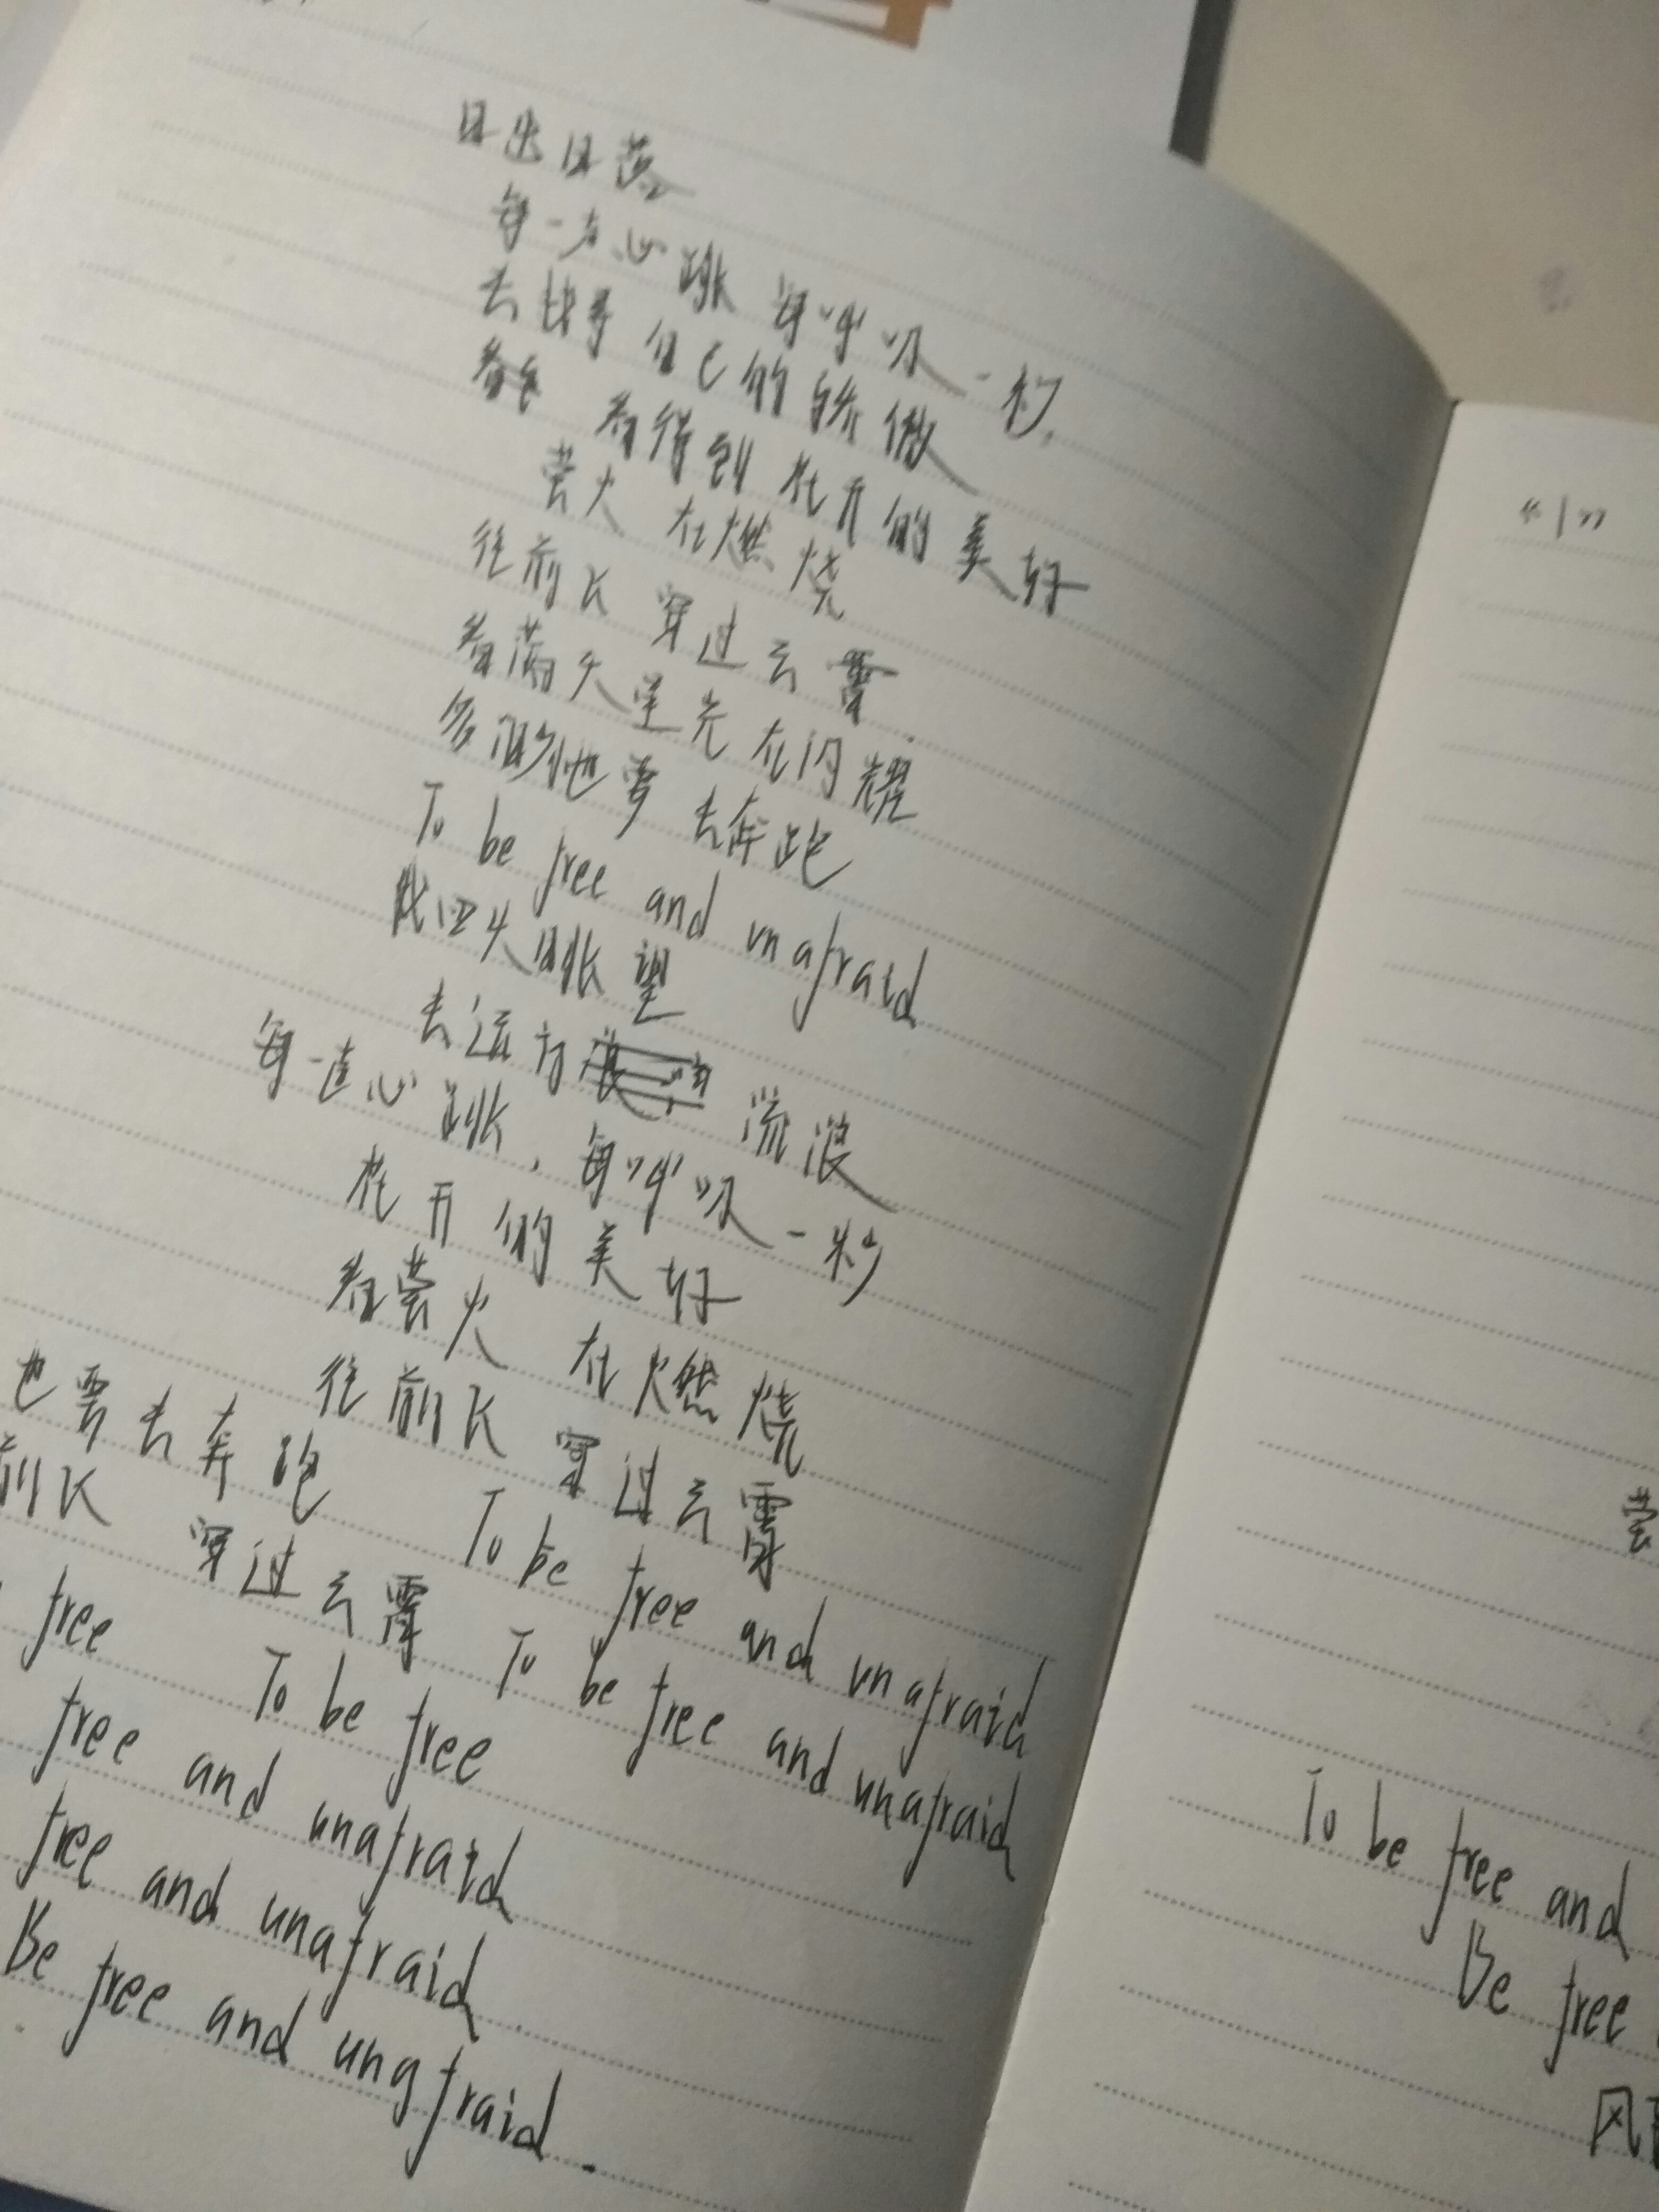 日出日落
每一次心跳 每呼吸一秒,
去找寻自己的骄傲
看得到花开的美好
萤火 在燃烧
往前飞 穿过云霄
看满天星光在闪耀
多渺小也要去奔跑
To be free and unafraid
我四处眺望
去远方 流浪
每一直心跳,每呼吸一秒
花开的美好
看萤火 在燃烧
往前飞 穿过云霄
也要去奔跑 To be free and unafraid
前飞 穿过云霄 To be free and unafraid
free To be free
free and unafraid
free and unafraid
Be free and unafraid.
“1”
萤
To be free and
Be free
风